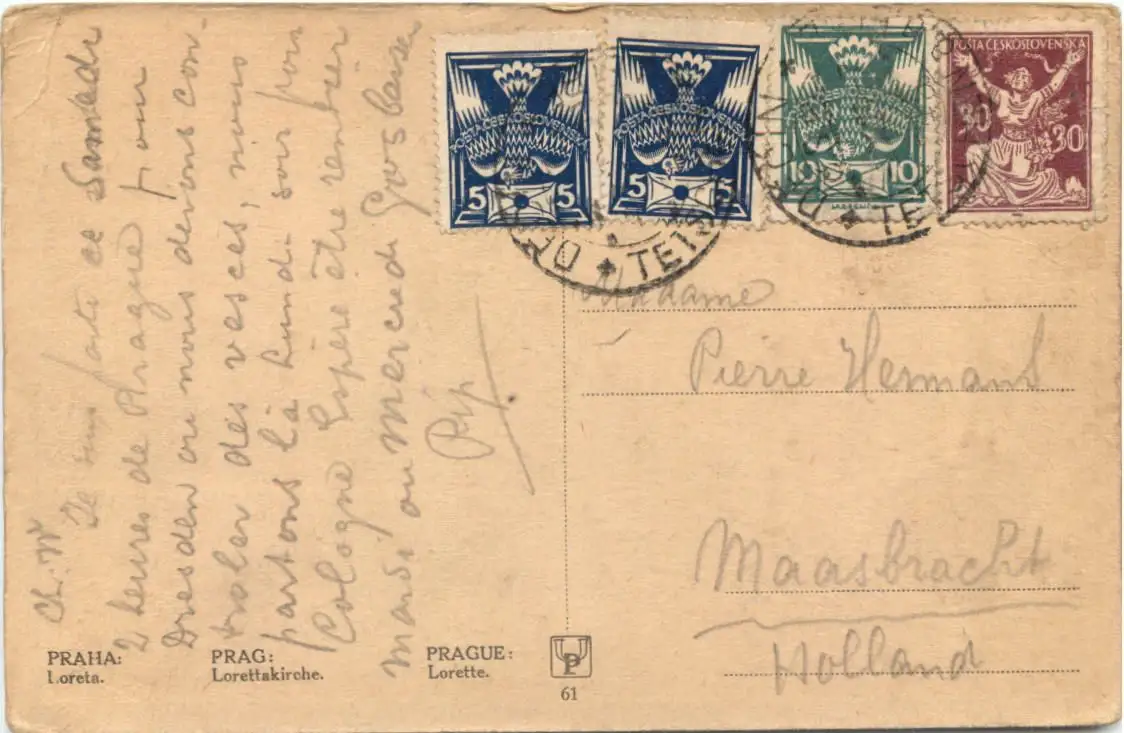 POSTA ČESKOSLOVENSKÁ
5
POSTA ČESKOSLOVENSKÁ
5 5
POSTA ČESKOSLOVENSKÁ
10 10
POŠTA ČESKOSLOVENSKÁ
30 30
TETSCHEN
DĚČÍN
Ch. W
Je suis parti ce Samedi
2 heures de Prague pour
Dresden où nous devons con-
troler des vesces, nous
partons là Lundi soir pour
Cologne Espère être rentrer
mardi ou mercredi Gros baiser
Pip.
Madame
Pierre Hermans
Maasbracht
Holland
PRAHA:
Loreta.
PRAG:
Lorettakirche.
PRAGUE:
Lorette.
61